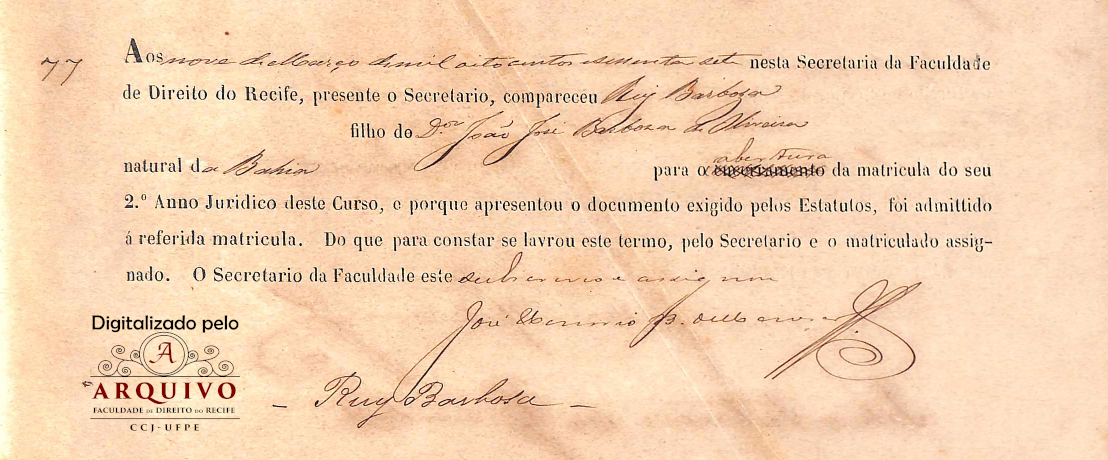 77
Aos nove de Março de mil oito centos e sessenta e sete nesta Secretaria da Faculdade
de Direito do Recife, presente o Secretario, compareceu Ruy Barbosa
filho do Dor João José Barbosa de Oliveira
natural da Bahia para o encerramento abertura da matricula do seu
2.º Anno Juridico deste Curso, e porque apresentou o documento exigido pelos Estatutos, foi admittido
á referida matricula. Do que para constar se lavrou este termo, pelo Secretario e o matriculado assig-
nado. O Secretario da Faculdade este subscrevo e assigno
José Honorio B. de Menezes
Ruy Barbosa
Digitalizado pelo
A
ARQUIVO
FACULDADE DE DIREITO DO RECIFE
CCJ-UFPE